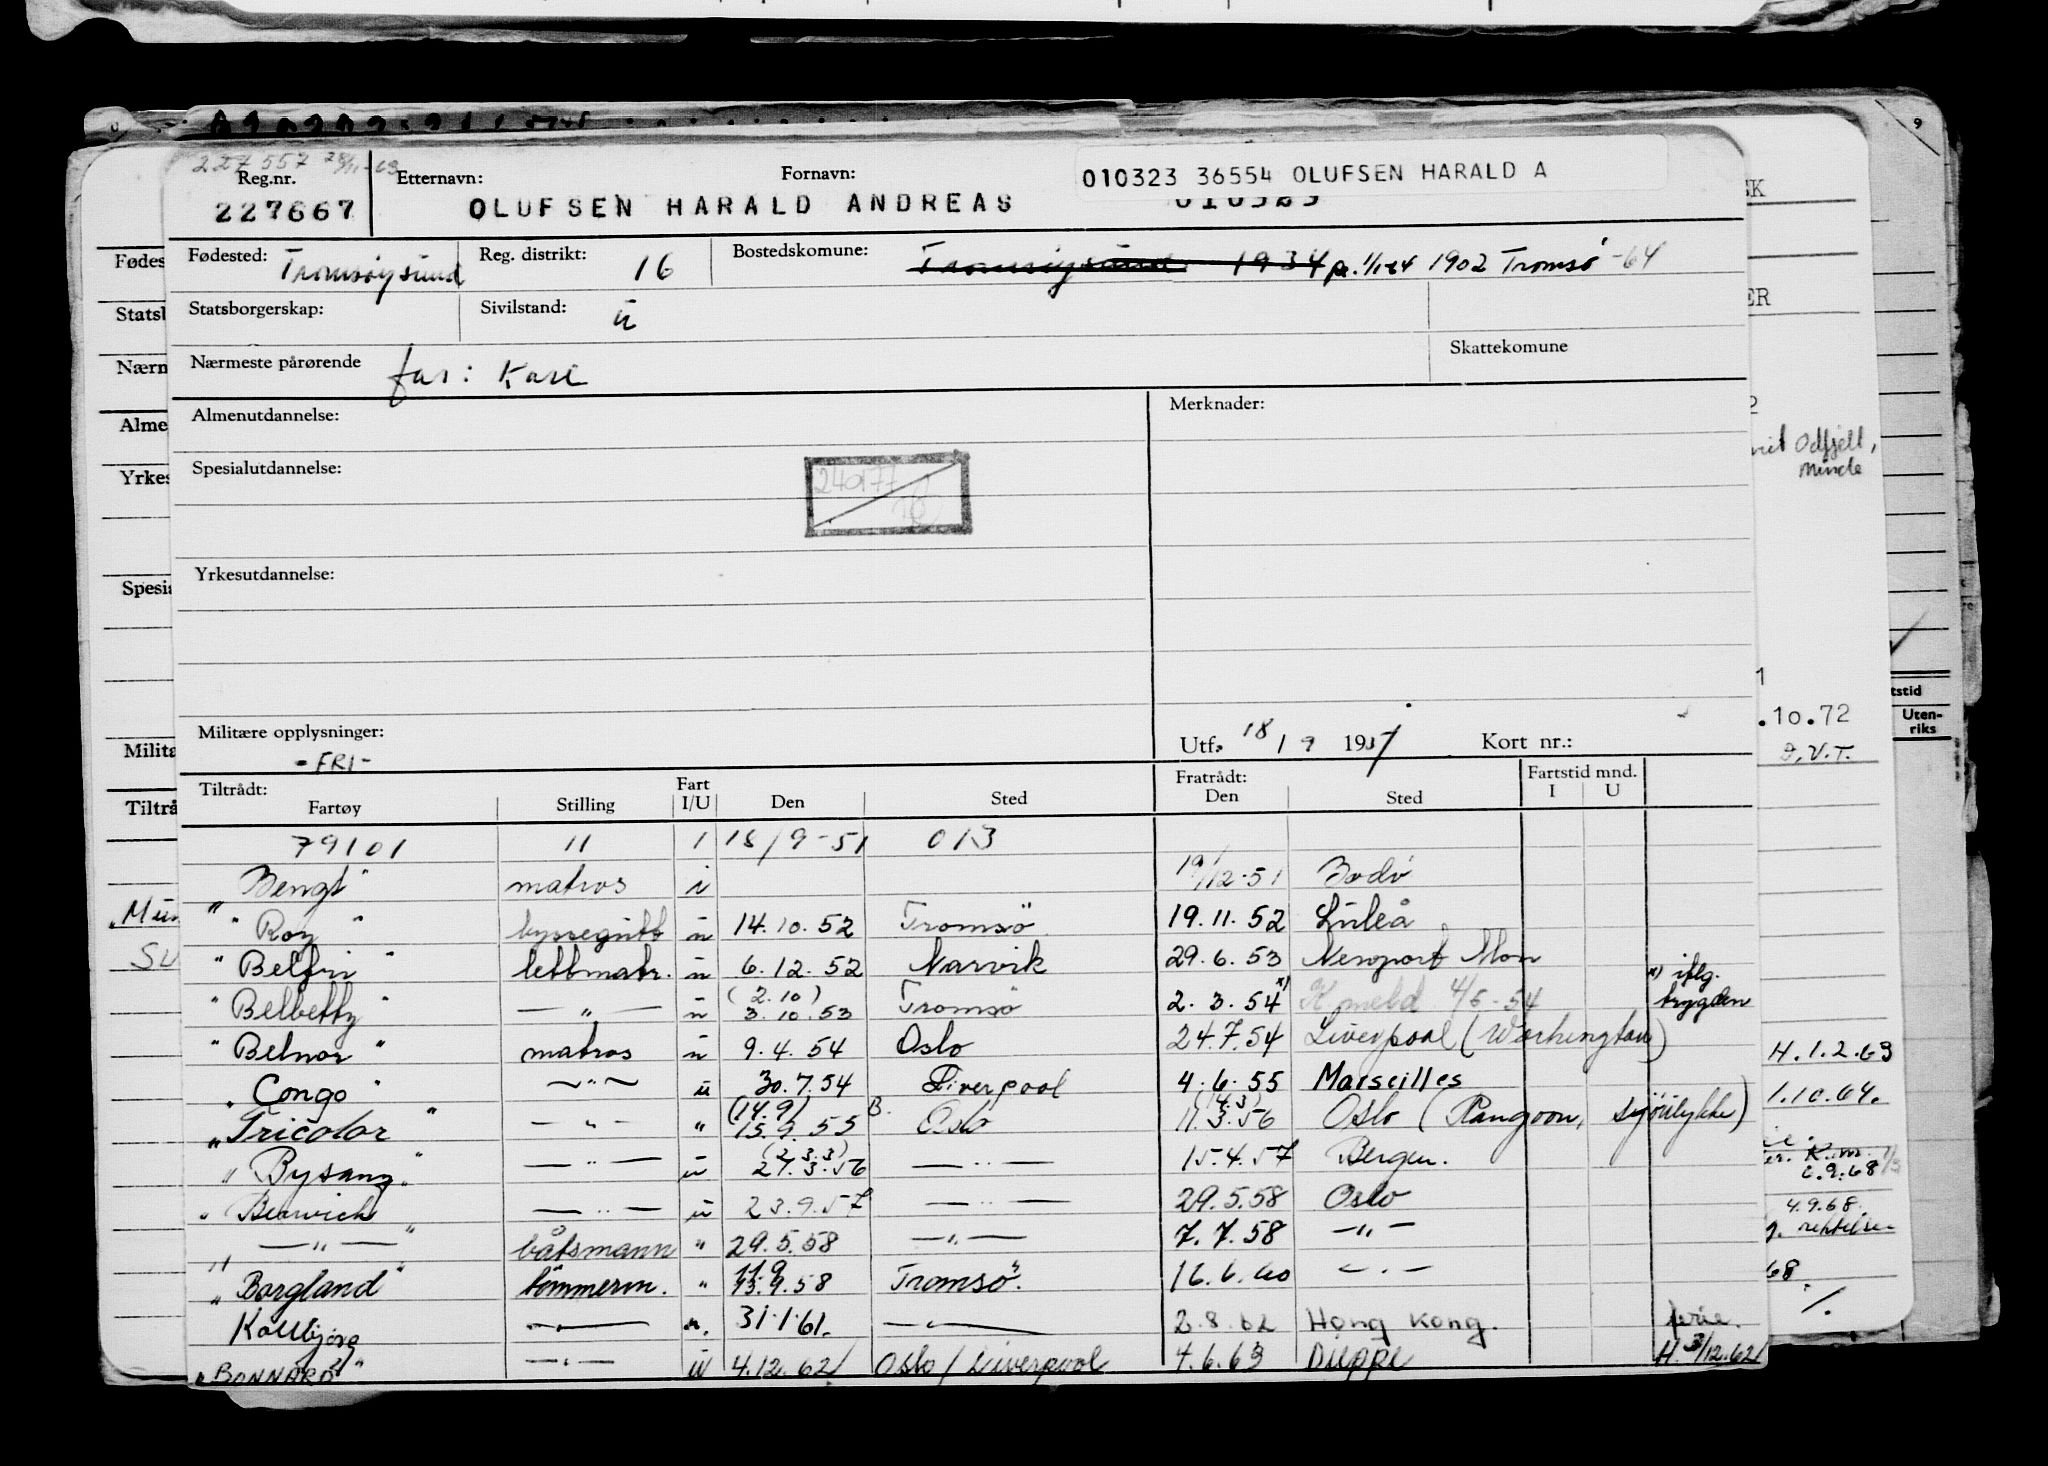 227557 28/11-69
Reg.nr. Etternavn: Fornavn: 010323 36554 OLUFSEN HARALD A
227667 OLUFSEN HARALD ANDREAS 010323
Fødested: Tromsøysund Reg. distrikt: 16 Bostedskomune: Tromsøysund 1934 pr. 1/1-64 1902 Tromsø -64
Statsborgerskap: Sivilstand: u
Nærmeste pårørende far: Karl Skattekomune
Almenutdannelse: Merknader:
Spesialutdannelse:
240177
Yrkesutdannelse:
Militære opplysninger: Utf. 18/9 1951 Kort nr.:
-FRI-
Tiltrådt: Fart Fratrådt: Fartstid mnd.
Fartøy Stilling I/U Den Sted Den Sted I U
79101 11 1 18/9-51 013
"Bengt" matros i 19/12-51 Bodø
"Roy" byssegutt u 14.10.52 Tromsö 19.11.52 Luleå
"Belfri" lettmatr. u 6.12.52 Narvik 29.6.53 Newport Mon
"Belbetty" —„— u (2.10) 3.10.53 Tromsö 2.3.54 x) K.meld 4/5-54 x) iflg. trygden
"Belnor" matros u 9.4.54 Oslo 24.7.54 Liverpool (Workington)
"Congo" —„— u 30.7.54 Liverpool 4.6.55 Marseilles
"Tricolor" —„— " (14.9) 15.9.55 B. Oslo (4.3) 11.3.56 Oslo (Rangoon, sjöulykke)
"Bysanz" —„— u (2.3.3) 27.3.56 —„— 15.4.57 Bergen.
"Berwick —„— u 23.9.57 —„— 29.5.58 Oslo
"—„—" båtsmann " 29.5.58 —„— 7.7.58 —„—
"Borgland" tömmerm. " 11.9 13.9.58 Tromsö. 16.6.60 —„—
Kollbjørg —„— ". 31.1.61. —„— 2.8.62 Hong Kong. ferie.
"BONNARD" —„— u 4.12.62 Oslo / Liverpool 4.6.63 Dieppe H. 3/12.62
Fødes
Statsb
Nærm
Alme
Yrkes
Spesia
Milita
Tiltrå
9
SK
ER
2
Odfjell,
Minde
1
.10.72
tstid
Uten-
riks
H.1.2.63
1.10.64.
4.9.68.
68.